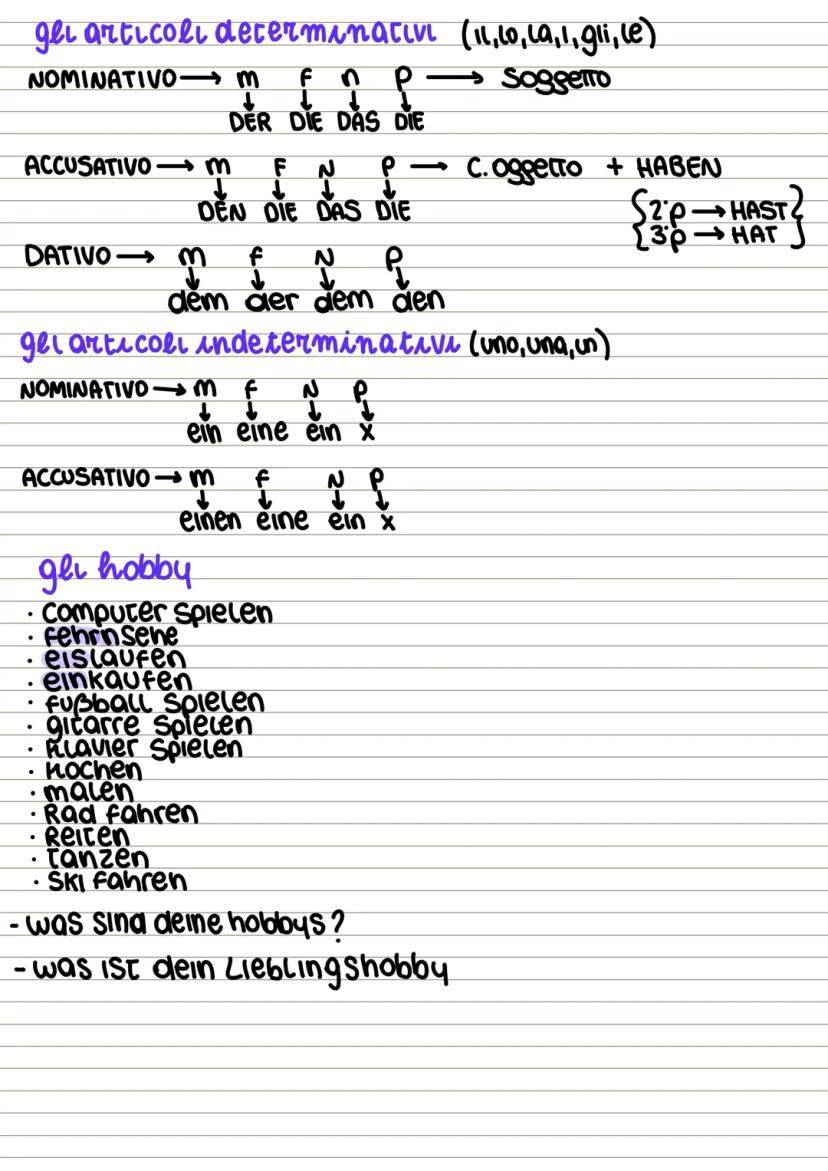 gli articoli determinativi (il,lo,la,i,gli,le)
NOMINATIVO → m f n p → Soggetto
DER DIE DAS DIE
ACCUSATIVO → m F N P → C.oggetto + HABEN
DEN DIE DAS DIE
{2°p → HAST}
{3°p → HAT}
DATIVO → m f N p
dem der dem den
gli articoli indeterminativi (uno,una,un)
NOMINATIVO → m f N p
ein eine ein x
ACCUSATIVO → m f N P
einen eine ein x
gli hobby
· computer spielen
· fehrnsehe
· eislaufen
· einkaufen
· fußball spielen
· gitarre spielen
· Klavier spielen
· Kochen
· malen
· Rad fahren
· Reiten
· Tanzen
· Ski fahren
- was sind deine hobbys?
- was ist dein Lieblingshobby